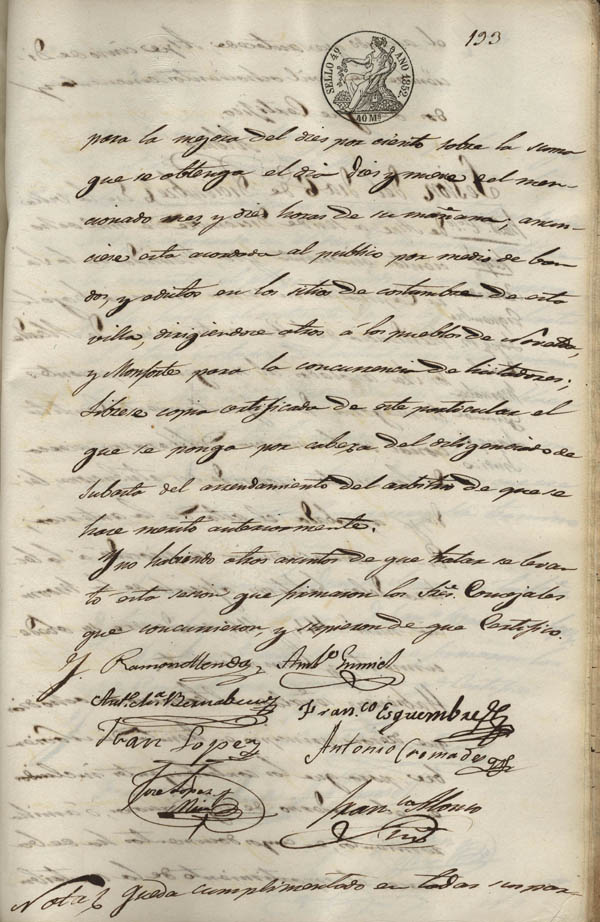 193
SELLO 4º AÑO 1852.
40 Ms.
para la mejora del dies por ciento sobre la suma
que se obtenga el dia dies y nueve del men-
cionado mes y diez horas de su mañana, anun-
ciese esta acordada al publico por medio de ban-
dos, y edictos en los sitios de costumbre de esta
villa, dirigiendose otros á los pueblos de Novelda,
y Monforte para la concurrencia de licitadores;
librese copia certificada de este particular el
que se ponga por cabeza del diligenciado de
subasta del arrendamiento del arbitrio de que se
hace merito anteriormente.
Y no habiendo otros asuntos de que tratar se levan-
tó esta sesion que firmaron los Sres. Concejales
que concurrieron, y supieron de que Certifico.
J. Ramon
Anto. Ma. Bernabeu
Franco. Esquembre
Juan Lopez
Antonio Cremades
Jose Lopez
Alonso
Nota
queda cumplimentado en todas sus par-